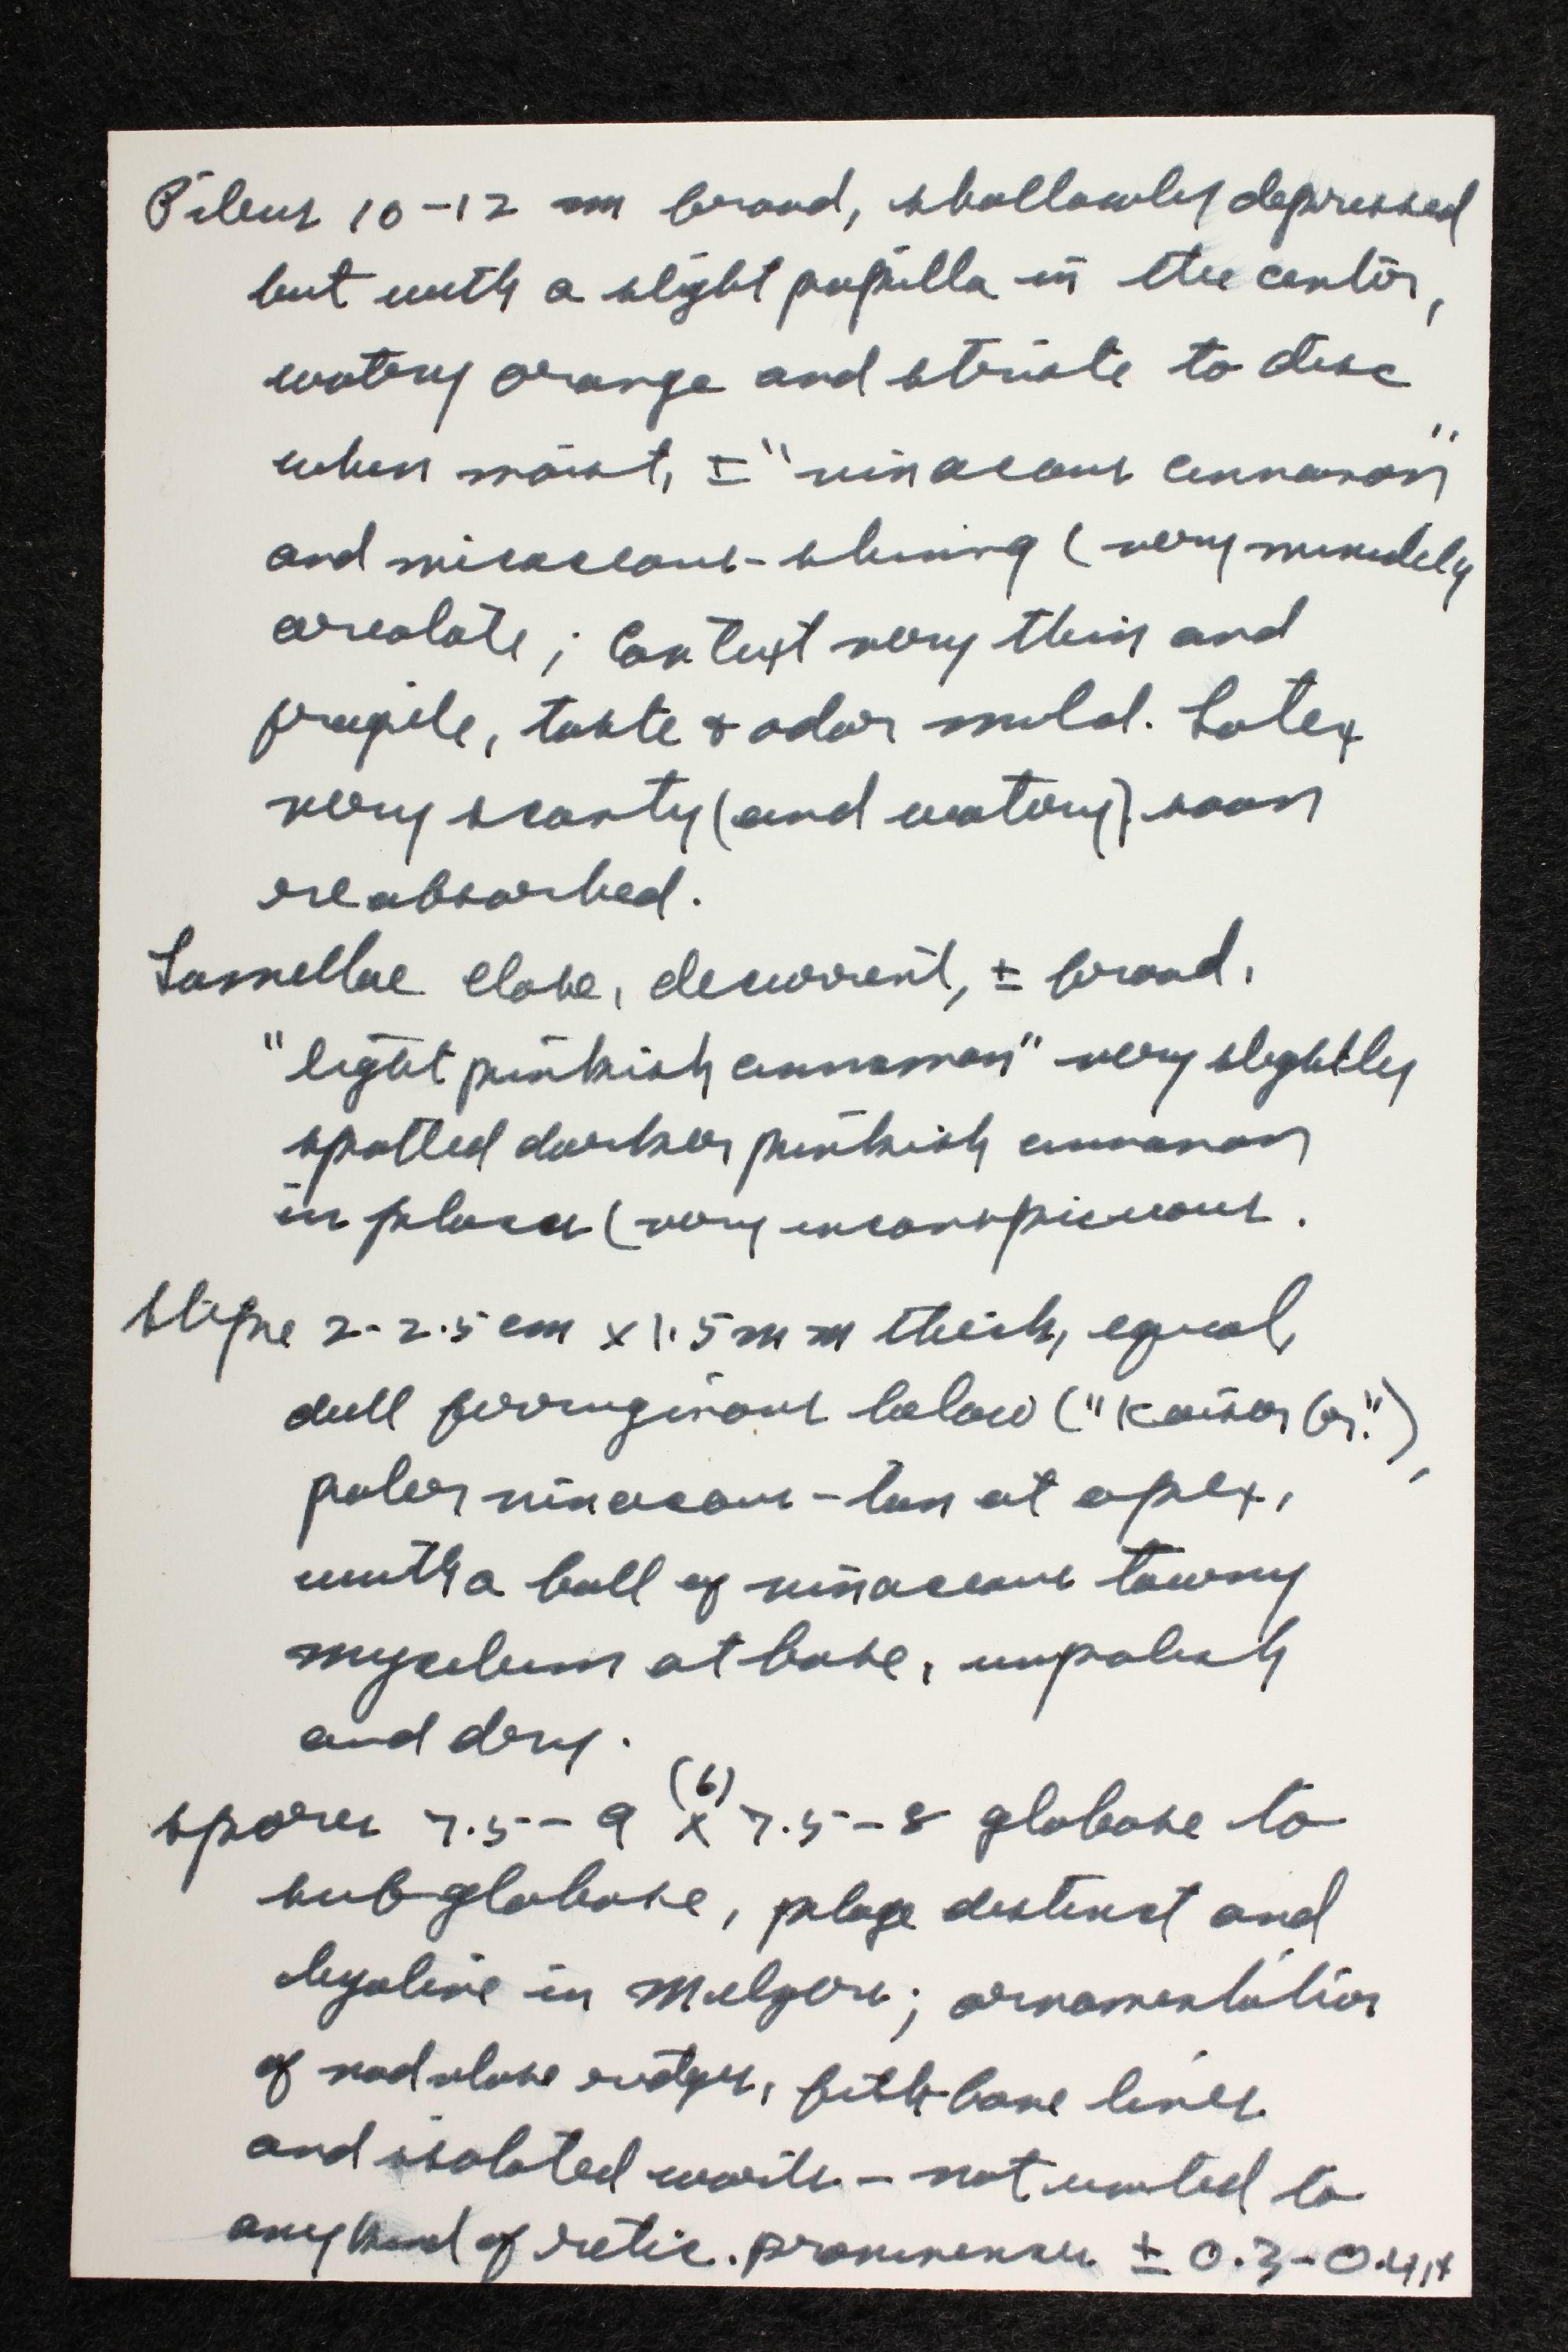 Pileus 10-12 mm broad, shallowly depressed
but with a slight papilla in the center,
watery orange and striate to disc
when moist, ± "vinaceous cinnamon"
and micaceous-shining (very minutely
areolate; Context very thin and
fragile, taste & odor mild. Latex
very scanty (and watery) soon
reabsorbed.
Lamellae close, decurrent, ± broad,
"light pinkish cinnamon" very slightly
spotted darker pinkish cinnamon
in places (very inconspicuous.
Stipe 2-2.5 cm x 1.5 mm thick, equal,
dull ferruginous below ("Kaiser br."),
paler vinaceous-tan at apex,
with a ball of vinaceous tawny
mycelium at base, unpolish
and dry.
(6)
spores 7.5-9 x 7.5-8 globose to
subglobose, plage distinct and
hyaline in Melzers; ornamentation
of nodulose ridges, fish-bone lines
and isolated warts - not united to
any kind of retic. prominences ± 0.3-0.4µ